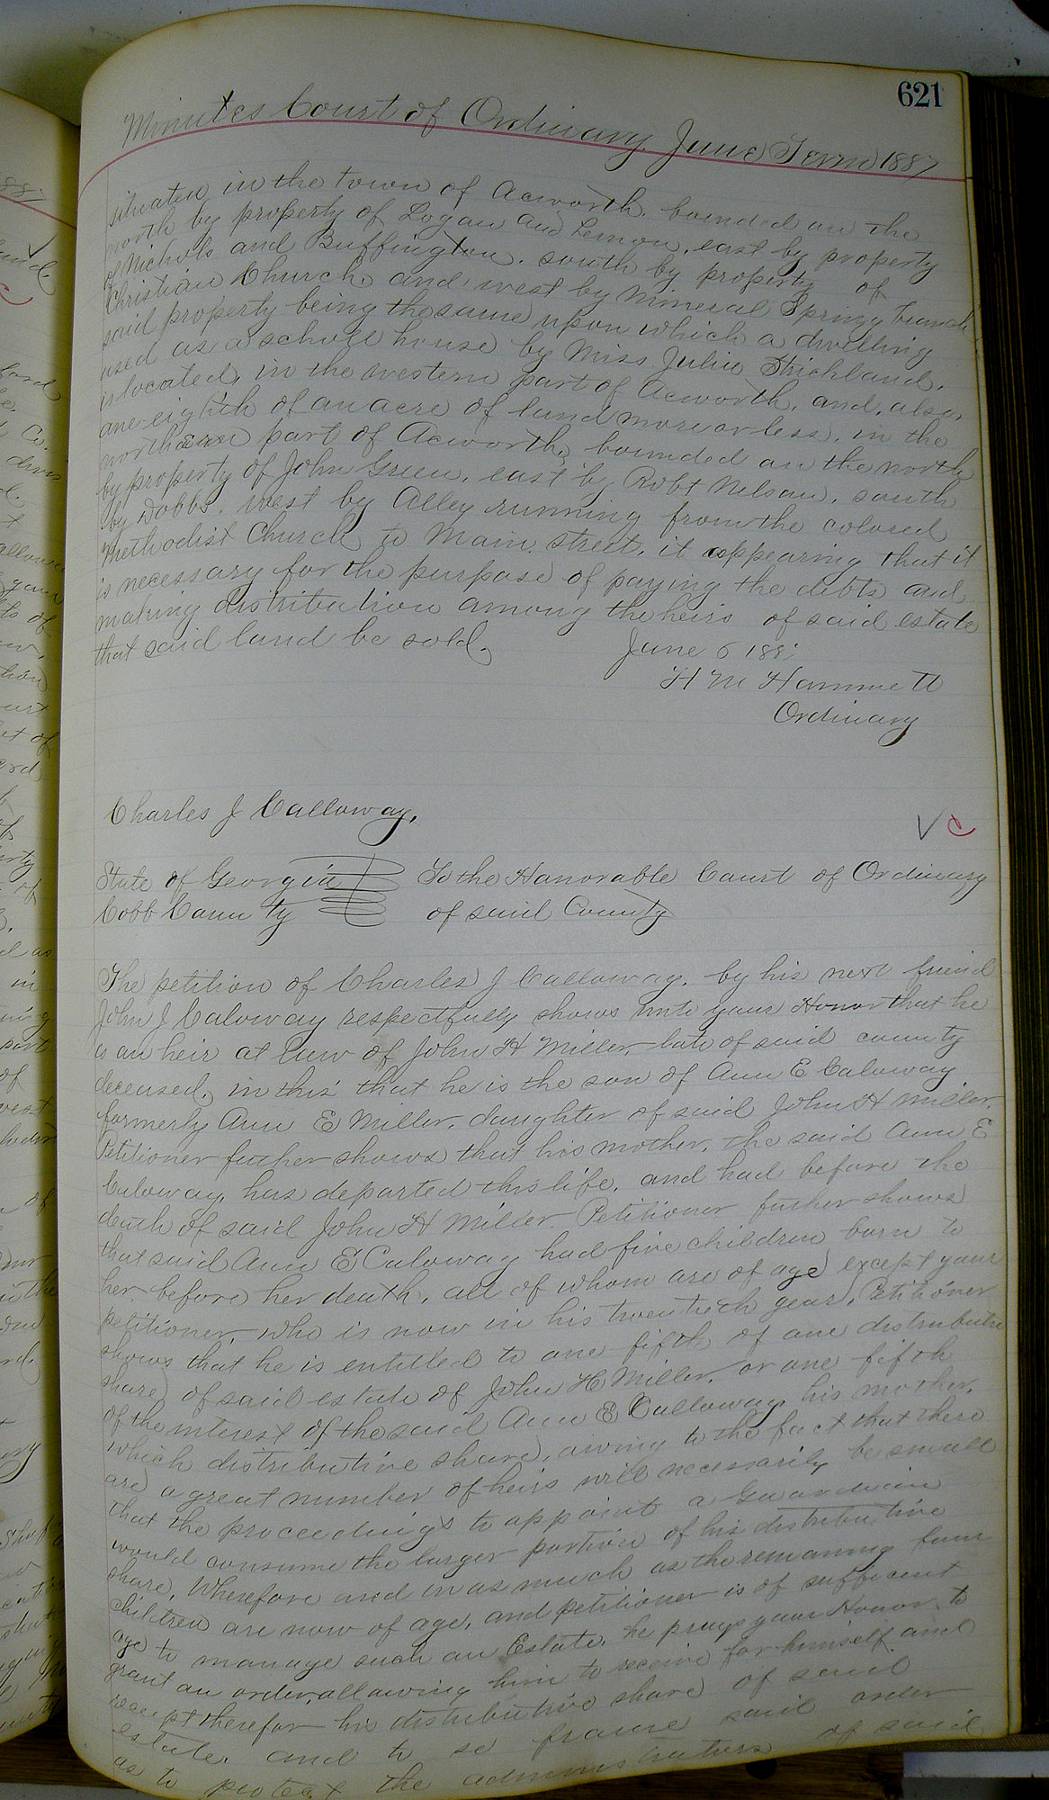 621
Minutes Court of Ordinary June Term 1887
situated in the town of Acworth, bounded on the
north by property of Logan and Lemon, east by property
of Nichols and Buffington, south by property of
Christian Church, and west by Mineral Spring branch
said property being the same upon which a dwelling
used as a school house by Miss Julia Strickland,
is located, in the western part of Acworth, and, also,
one eighth of an acre of land more or less, in the
northern part of Acworth, bounded on the north
by property of John Green, east by Robt Nelson, south
by Dobbs, west by Alley running from the colored
Methodist Church to Main street, it appearing that it
is necessary for the purpose of paying the debts and
making distribution among the heirs of said estate
that said land be sold.
June 6 188
H M Hammett
Ordinary
Charles J Calloway,
V C
State of Georgia
Cobb County
To the Honorable Court of Ordinary
of said County
The petition of Charles J Calloway, by his next friend
John J Caloway respectfully shows unto your Honor that he
is an heir at law of John H Miller late of said county
deceased, in this that he is the son of Ann E Caloway
formerly Ann E Miller, daughter of said John H Miller.
Petitioner futher shows that his mother, the said Ann E
Caloway, has departed this life, and had before the
death of said John H Miller. Petitioner futher shows
that said Ann E Caloway had five children born to
her before her death, all of whom are of age except your
petitioner, who is now in his twentieth year, Petitioner
shows that he is entitled to one fifth of one distributive
share of said estate of John H Miller, or one fifth
of the interest of the said Ann E Calloway his mother,
which distributive share, owing to the fact that there
are a great number of heirs will necessarily be small
that the proceedings to appoint a Guardian
would consume the larger portion of his distributive
share, Wherefore and in as much as the remaining four
children are now of age, and petitioner is of sufficient
age to manage such an Estate, he prays your Honor to
grant an order allowing him to receive for himself and
receipt therefor his distributive share of said
estate, and to so frame said order
as to protect the administrators of said